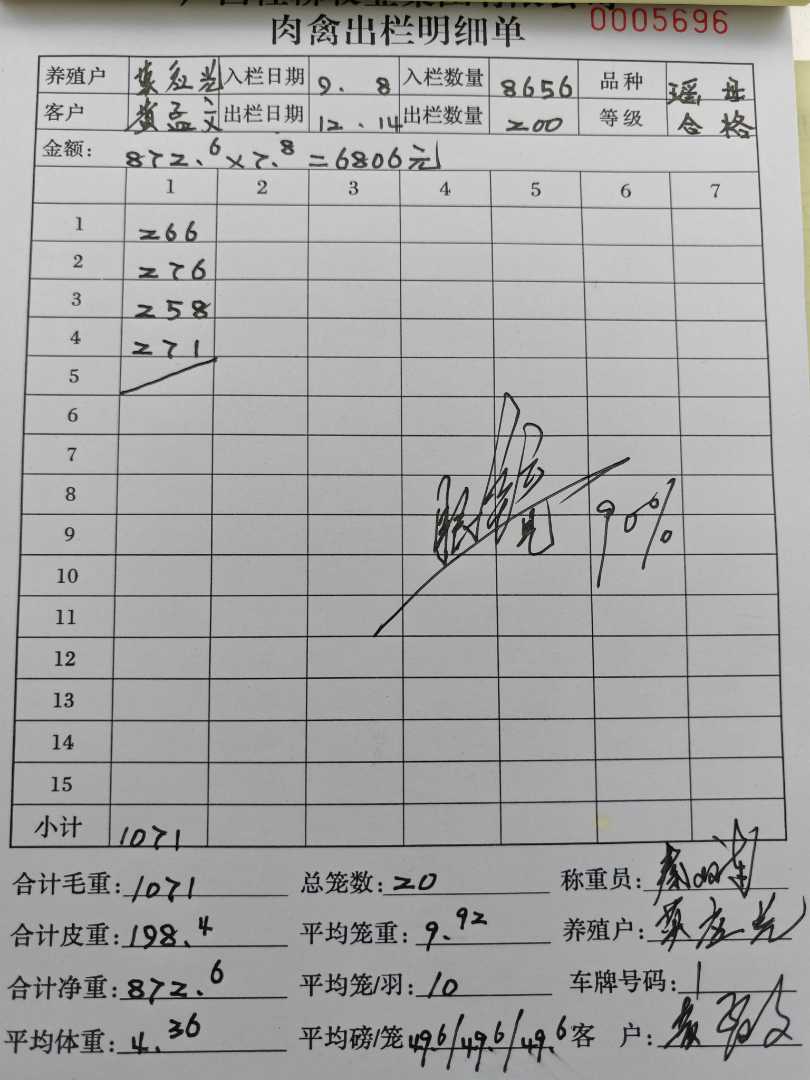 肉禽出栏明细单 0005696
养殖户 入栏日期 9.8 入栏数量 8656 品种 瑶
客户 出栏日期 12.14 出栏数量 200 等级 合格
金额: 872.6×7.8=6806元
1 2 3 4 5 6 7
1 266
2 276
3 258
4 271
5
6
7
8
9 90%
10
11
12
13
14
15
小计 1071
合计毛重: 1071 总笼数: 20 称重员:
合计皮重: 198.4 平均笼重: 9.92 养殖户:
合计净重: 872.6 平均笼/羽: 10 车牌号码: 1
平均体重: 4.36 平均磅/笼 49.6/49.6/49.6 客 户: